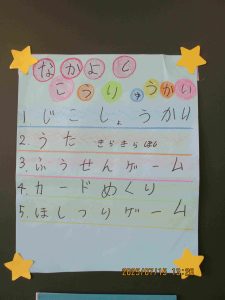 なかよし
こうりゅうかい
1 じこしょうかい
2. うた きらきらぼし
3. ふうせんゲーム
4. カードめくり
5. ほしつりゲーム
2025/07/15